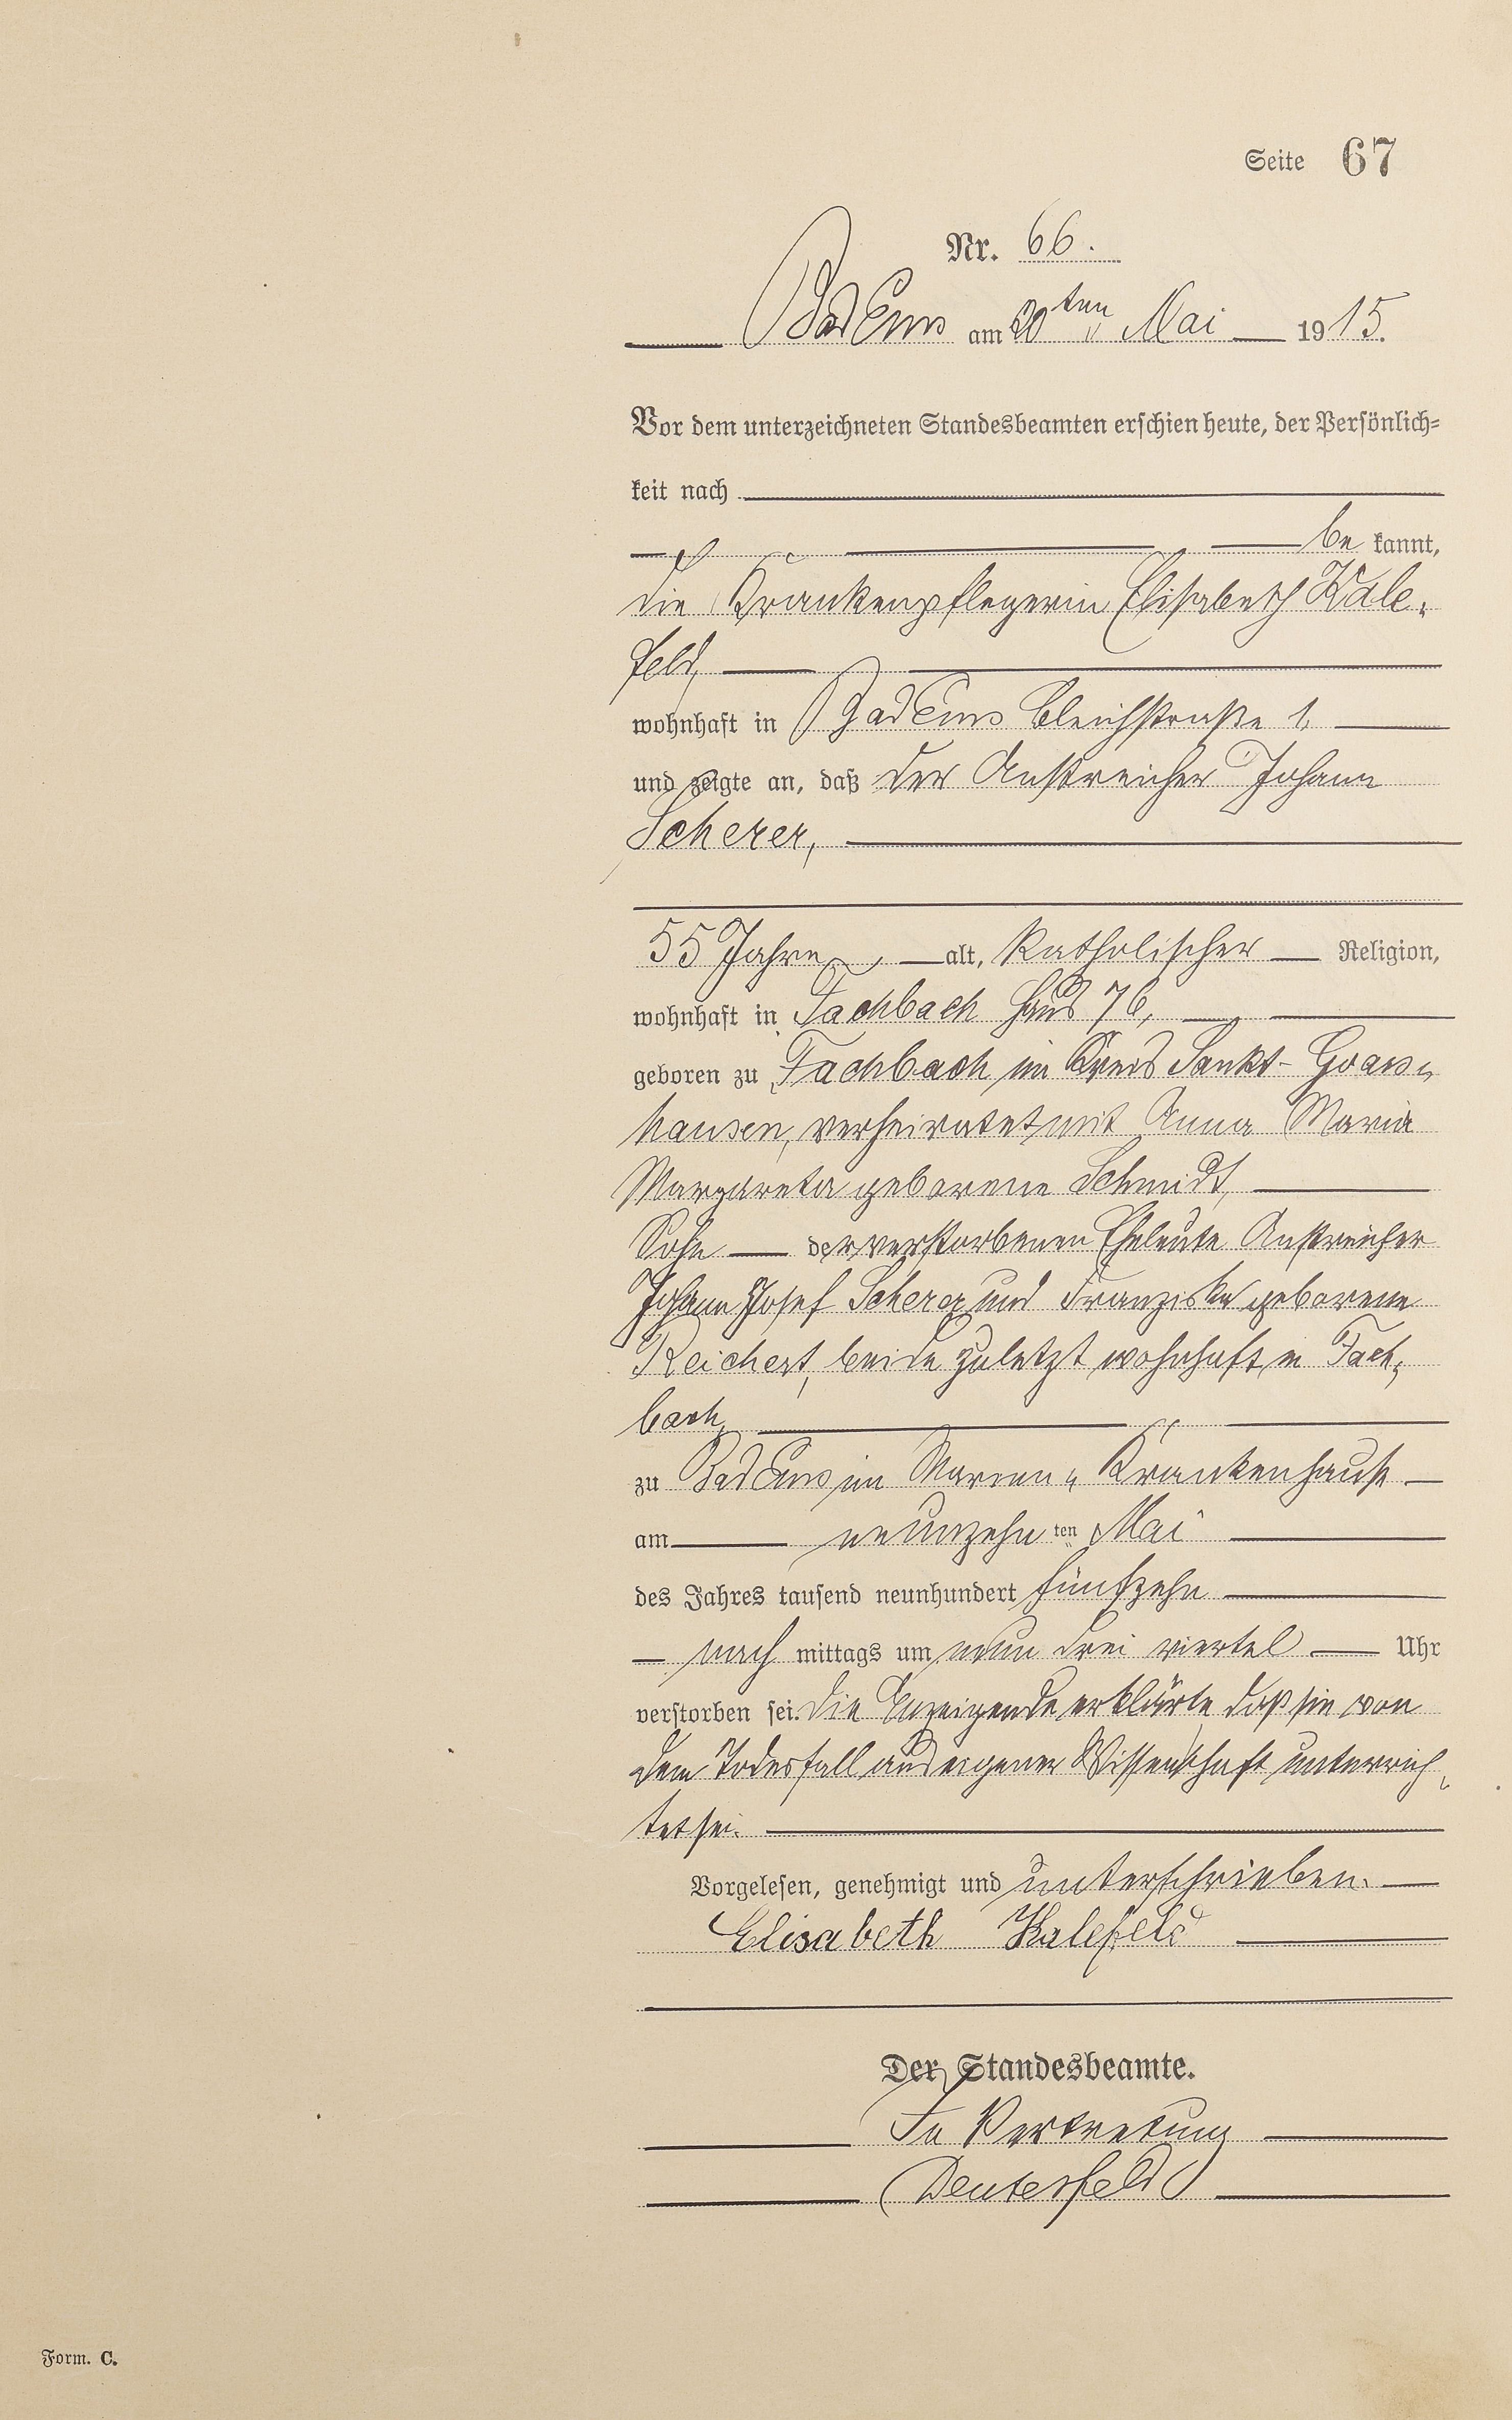 Seite 67
Nr. 66.
Bad Ems am 20ten Mai 1915.
Vor dem unterzeichneten Standesbeamten erschien heute, der Persönlich=
keit nach
be kannt,
die Krankenpflegerin Elisabeth Kale„
feld,
wohnhaft in Bad Ems Bleichstraße 1,
und zeigte an, daß der Anstreicher Johann
Scherer,
55 Jahre, alt, katholischer Religion,
wohnhaft in Fachbach Haus 76,
geboren zu Fachbach im Kreis Sankt-Goars„
hausen, verheiratet mit Anna Maria
Margareta geborene Schmidt,
Sohn der verstorbenen Eheleute Anstreicher
Johann Josef Scherer und Franziska geborene
Reichert, beide zuletzt wohnhaft in Fach„
bach,
zu Bad Ems im Marien„Krankenhause
am neunzehn ten Mai
des Jahres tausend neunhundert fünfzehn
nach mittags um neun drei viertel Uhr
verstorben sei. Die Anzeigende erklärte, daß sie von
dem Todesfall aus eigener Wissenschaft unterrich„
tet sei.
Vorgelesen, genehmigt und unterschrieben.
Elisabeth Kalefeld
Der Standesbeamte.
In Vertretung
Deutesfeld
Form. C.